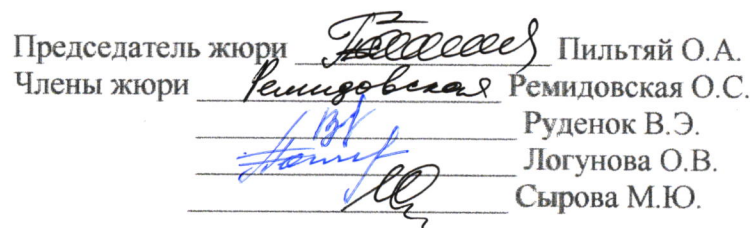 Председатель жюри Пильтяй О.А.
Члены жюри Ремидовская Ремидовская О.С.
Руденок В.Э.
Логунова О.В.
Сырова М.Ю.